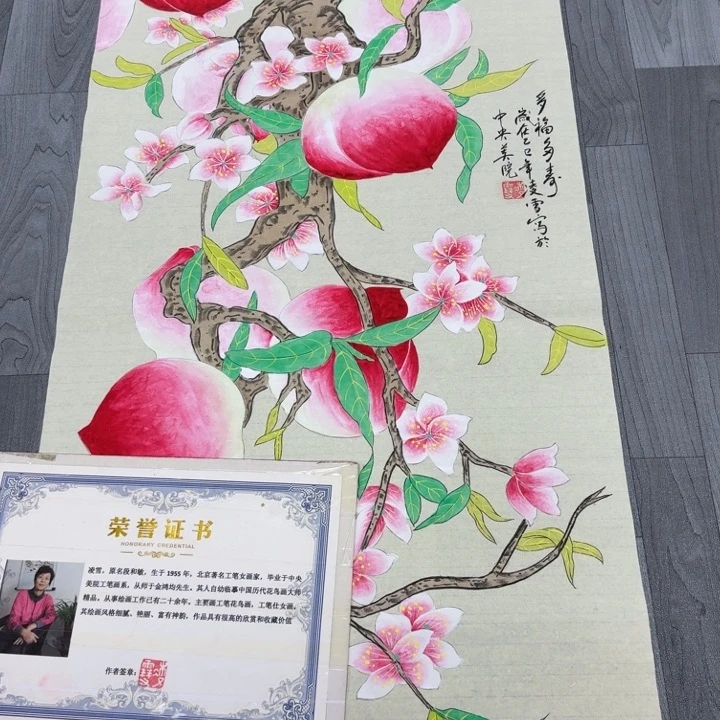 多福多寿
歲在乙巳年凌雪写於
中央美院
荣誉证书
HONORARY CREDENTIAL
凌雪，原名段和敏，生于 1955 年，北京著名工笔女画家，毕业于中央
美院工笔画系，从师于金鸿均先生，其人自动临摹中国历代花鸟画大师
精品，从事绘画工作已有二十余年，主要画工笔花鸟画，工笔仕女画，
其绘画风格细腻、艳丽、富有神韵，作品具有很高的欣赏和收藏价值
作者签章：